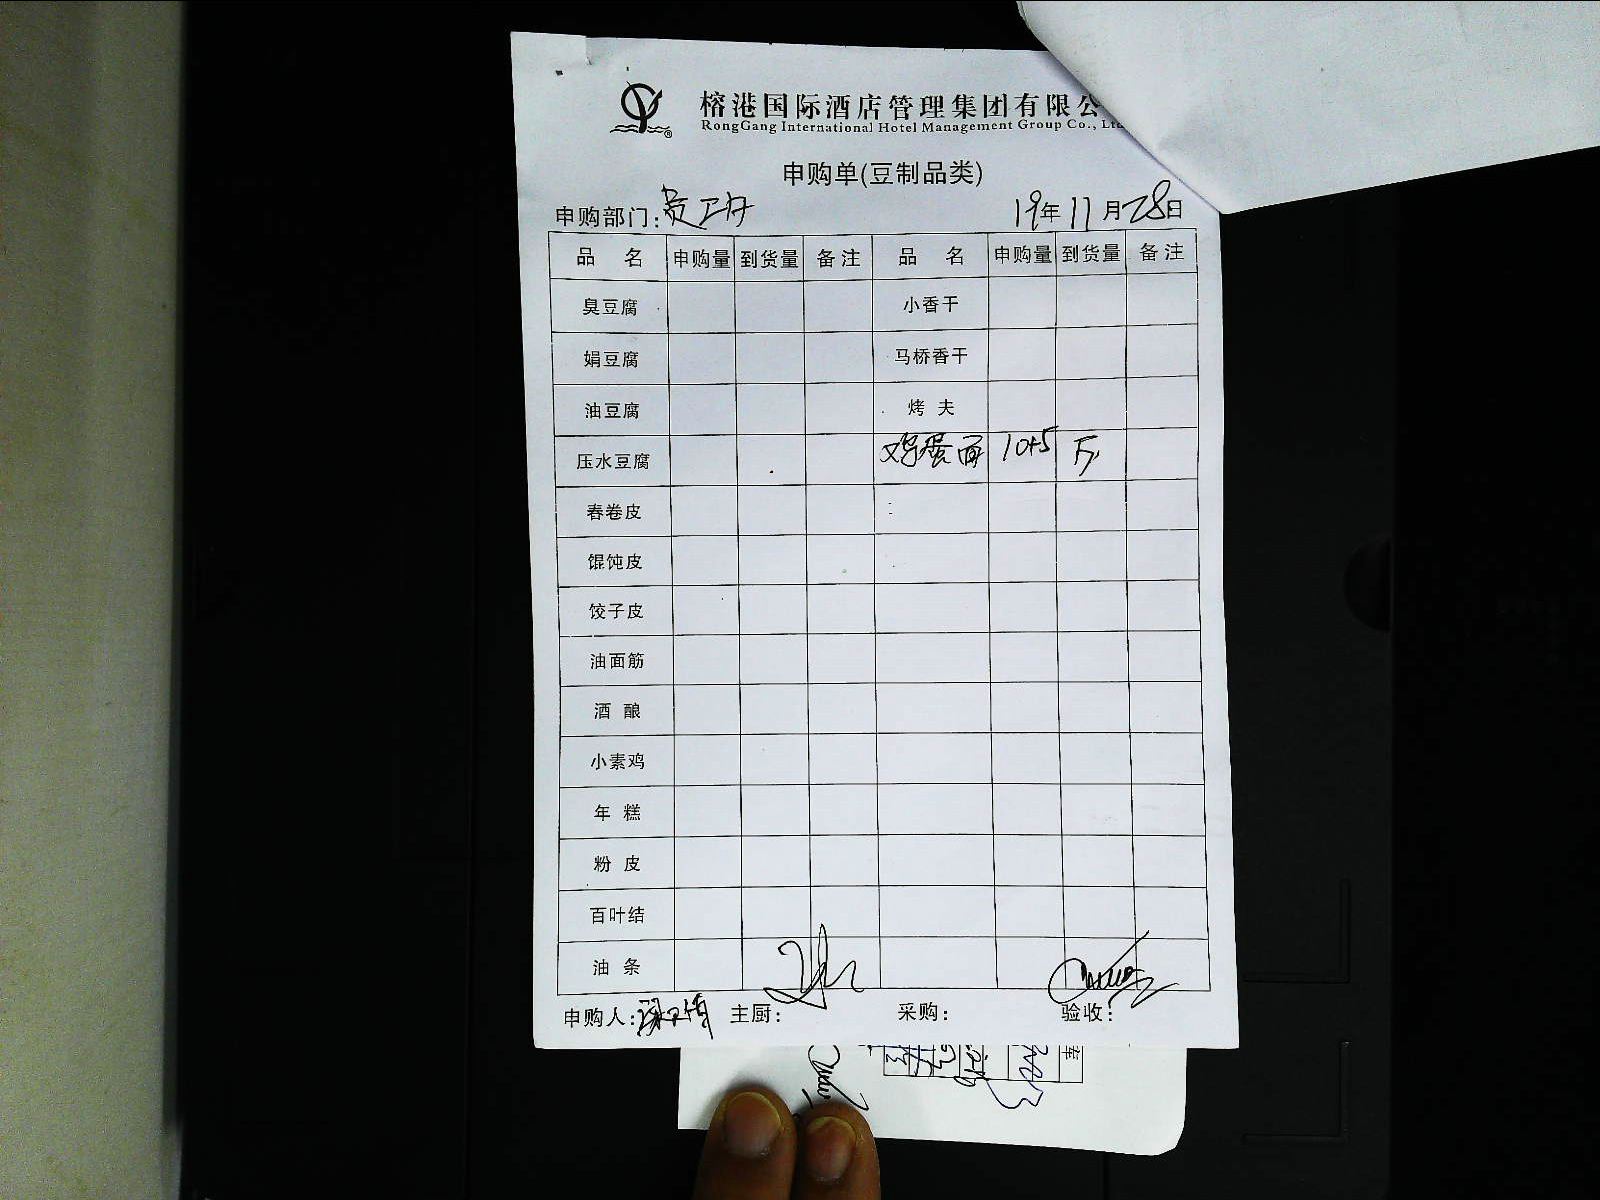 榕港国际酒店管理集团有限公
RongGang International Hotel Management Group Co., Lt
申购单(豆制品类)
申购部门: 员工 19年11月28日
品 名 申购量 到货量 备注 品 名 申购量 到货量 备注
臭豆腐 小香干
娟豆腐 马桥香干
油豆腐 烤 夫
压水豆腐 鸡蛋面 10+5 斤
春卷皮
馄饨皮
饺子皮
油面筋
酒 酿
小素鸡
年 糕
粉 皮
百叶结
油 条
申购人: 主厨: 采购: 验收: